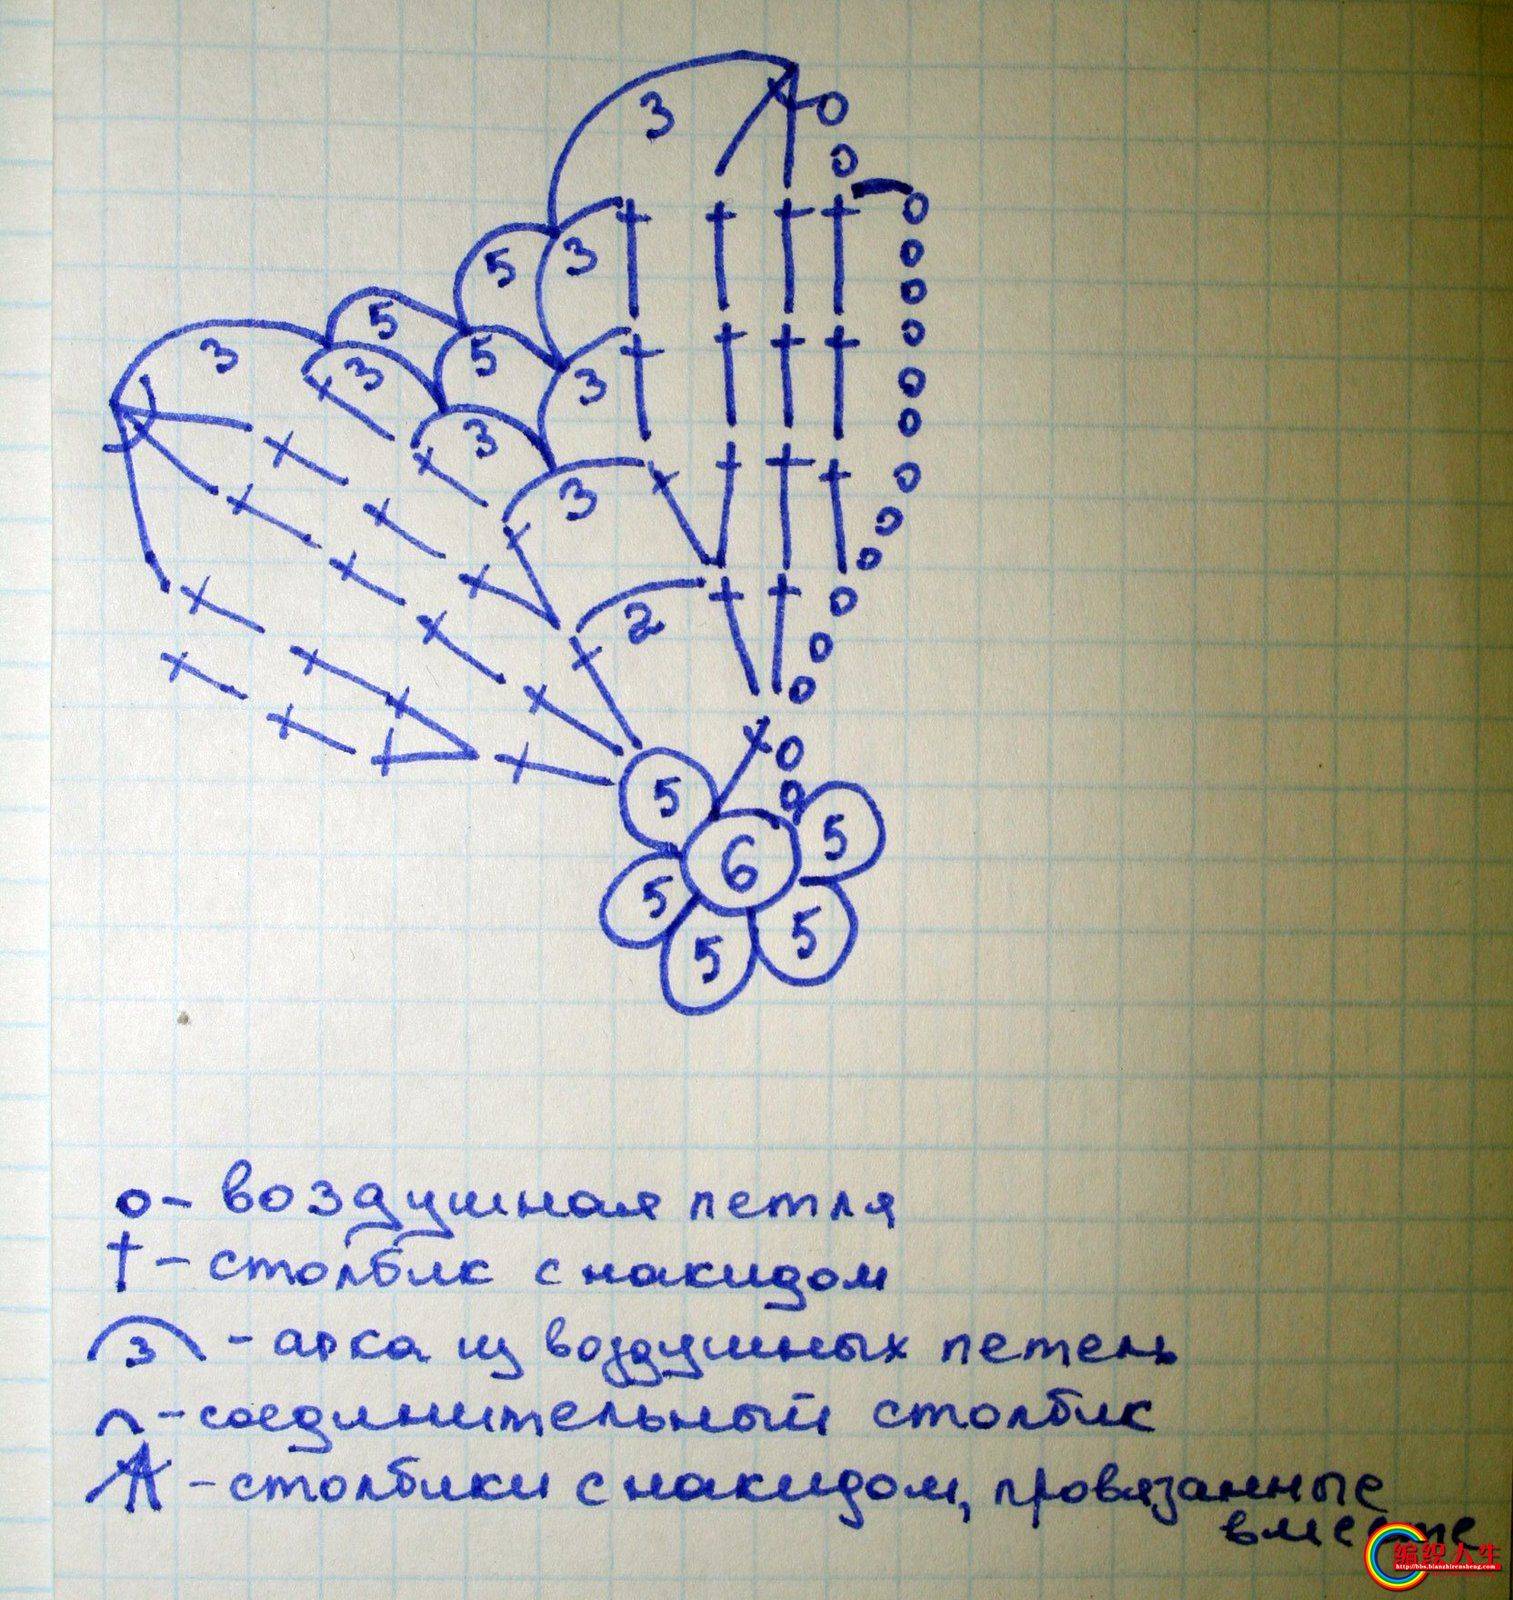 3
5
3
5
3
5
3
3
3
3
2
5
5
6
5
5
5
о - воздушная петля
† - столбик с накидом
3 - арка из воздушных петель
- соединительный столбик
- столбики с накидом, провязанные
вместе
编织人生
http://bbs.bianzhirensheng.com